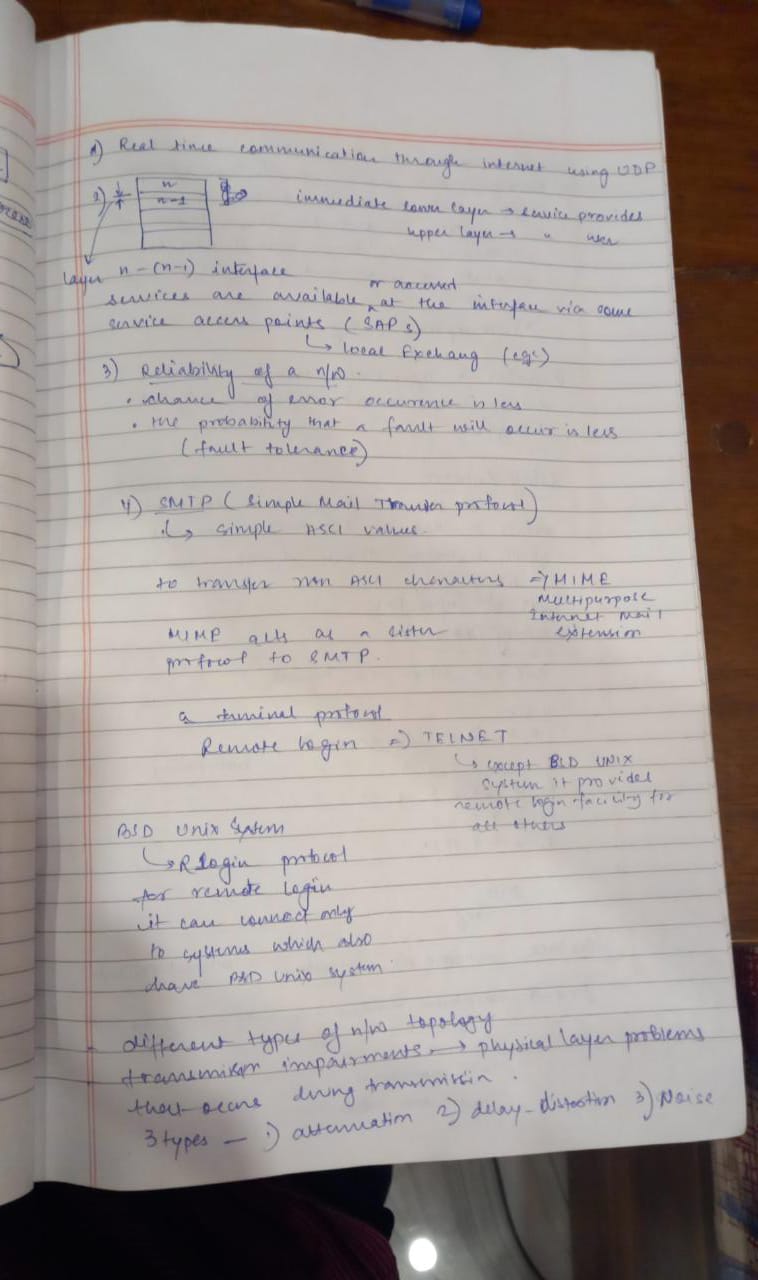 1) Real time communication through internet using UDP
2) n immediate lower layer → service provides
n-1 upper layer → " user
layer n-(n-1) interface
or accessed
services are available at the interface via some
service access points (SAPs)
↳ local Exchang (eg:)
3) Reliability of a n/w.
• chance of error occurence is less
• the probability that a fault will occur is less
(fault tolerance)
4) SMTP (Simple Mail Transfer protocol)
↳ simple ASCI values.
to transfer non ASCI characters => MIME
Multipurpose
Internet Mail
extension
MIME acts as a sister
protocol to SMTP.
a terminal protocol
Remote login => TELNET
↳ except BSD UNIX
system it provides
remote login facility for
all others
BSD Unix System
↳ Rlogin protocol
for remote login
it can connect only
to systems which also
have BSD Unix system.
- different types of n/w topology
- transmission impairments → physical layer problems
that occurs during transmission.
3 types — 1) attenuation 2) delay-distortion 3) Noise